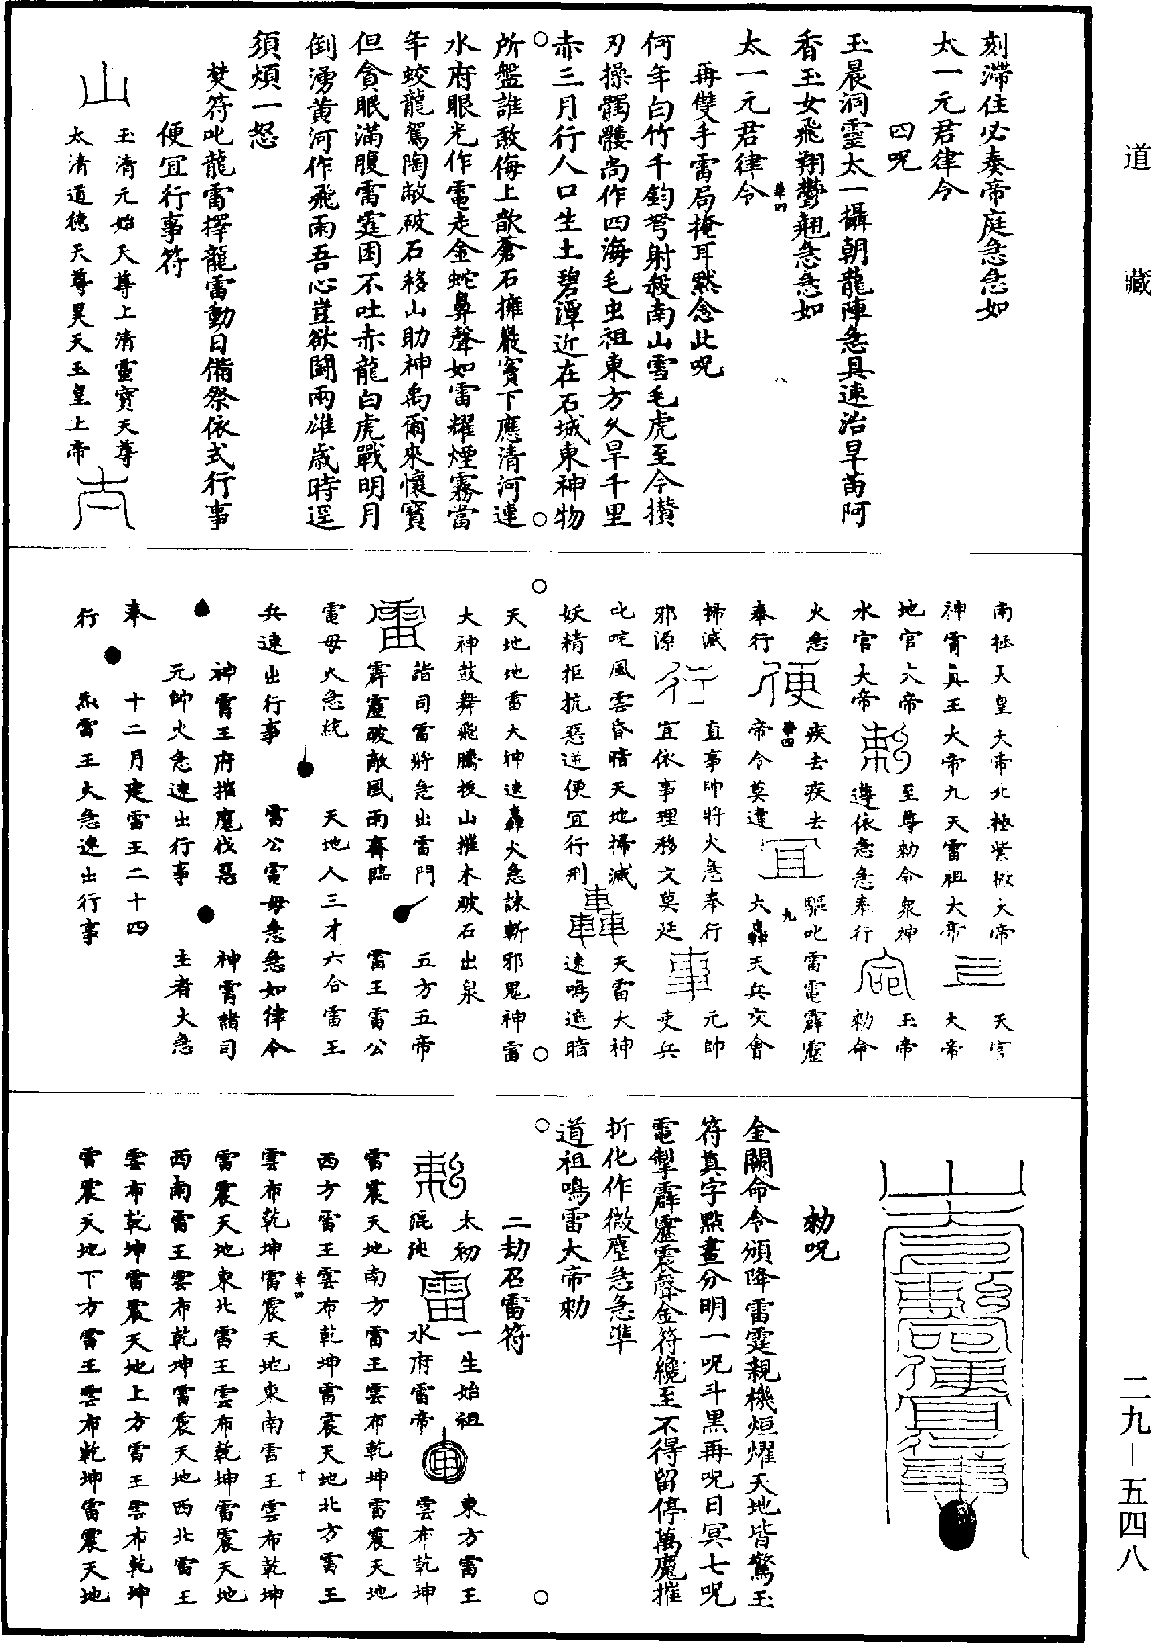 道藏
刻滯住必奏帝庭急急如
太一元君律令
四呪
玉晨洞靈太一攝朝龍陣急具速治旱苗阿
香玉女飛翔鬱翹急急如
太一元君律令
再雙手雷局掩耳默念此呪
何年白竹千鈞弩射殺南山雪毛虎至今攢
刃操髑髏尚作四海毛虫祖東方久旱千里
赤三月行人口生土碧潭近在石城東神物
所盤誰敢侮上欹蒼石擁巖竇下應清河連
水府眼光作電走金蛇鼻聲如雷耀煙霧當
年蛟龍駕陶敵破石移山助神禹爾來懷寶
但貪眠滿腹雷霆困不吐赤龍白虎戰明月
倒湧黃河作飛雨吾心豈欲鬪兩雄歲時逕
須煩一怒
焚符叱龍雷擇龍雷動日備祭依式行事
便宜行事符
玉清元始天尊上清靈寶天尊
太清道德天尊昊天玉皇上帝
南極天皇大帝北極紫微大帝 天官
神霄真王大帝九天雷祖大帝 大帝
地官大帝 至尊勑令衆神 玉帝
水官大帝 遵依急急奉行 勑命
火急 疾去疾去 驅叱雷電霹靂
奉行 帝令莫違 六轟天兵交會
掃滅 直事帥將火急奉行 元帥
邪源 宜依事理移文莫延 吏兵
叱咤風雲昏暗天地掃滅 天雷大神
妖精拒抗惡逆便宜行刑 速鳴遮暗
天地地雷大神速轟火急誅斬邪鬼神雷
大神鼓舞飛騰拔山摧木破石出泉
諸司雷將急出雷門 五方五帝
霹靂破敵風雨齊臨 雷王雷公
電母火急統 天地人三才六合雷王
兵速出行事 雷公電母急急如律令
神霄王府摧魔伐惡 神霄諸司
元帥火急速出行事 主者火急
奉 十二月建雷王二十四
行 炁雷王火急速出行事
勑呪
金闕命令頒降雷霆親機烜耀天地皆驚玉
符真字點畫分明一呪斗黑再呪日冥七呪
電掣霹靂震聲金符纔至不得留停萬魔摧
折化作微塵急急準
道祖鳴雷大帝勑
二劫召雷符
太初 一生始祖 東方雷王
混沌 水府雷帝 雲布乾坤
雷震天地南方雷王雲布乾坤雷震天地
西方雷王雲布乾坤雷震天地北方雷王
雲布乾坤雷震天地東南雷王雲布乾坤
雷震天地東北雷王雲布乾坤雷震天地
西南雷王雲布乾坤雷震天地西北雷王
雲布乾坤雷震天地上方雷王雲布乾坤
雷震天地下方雷王雲布乾坤雷震天地
二九—五四八